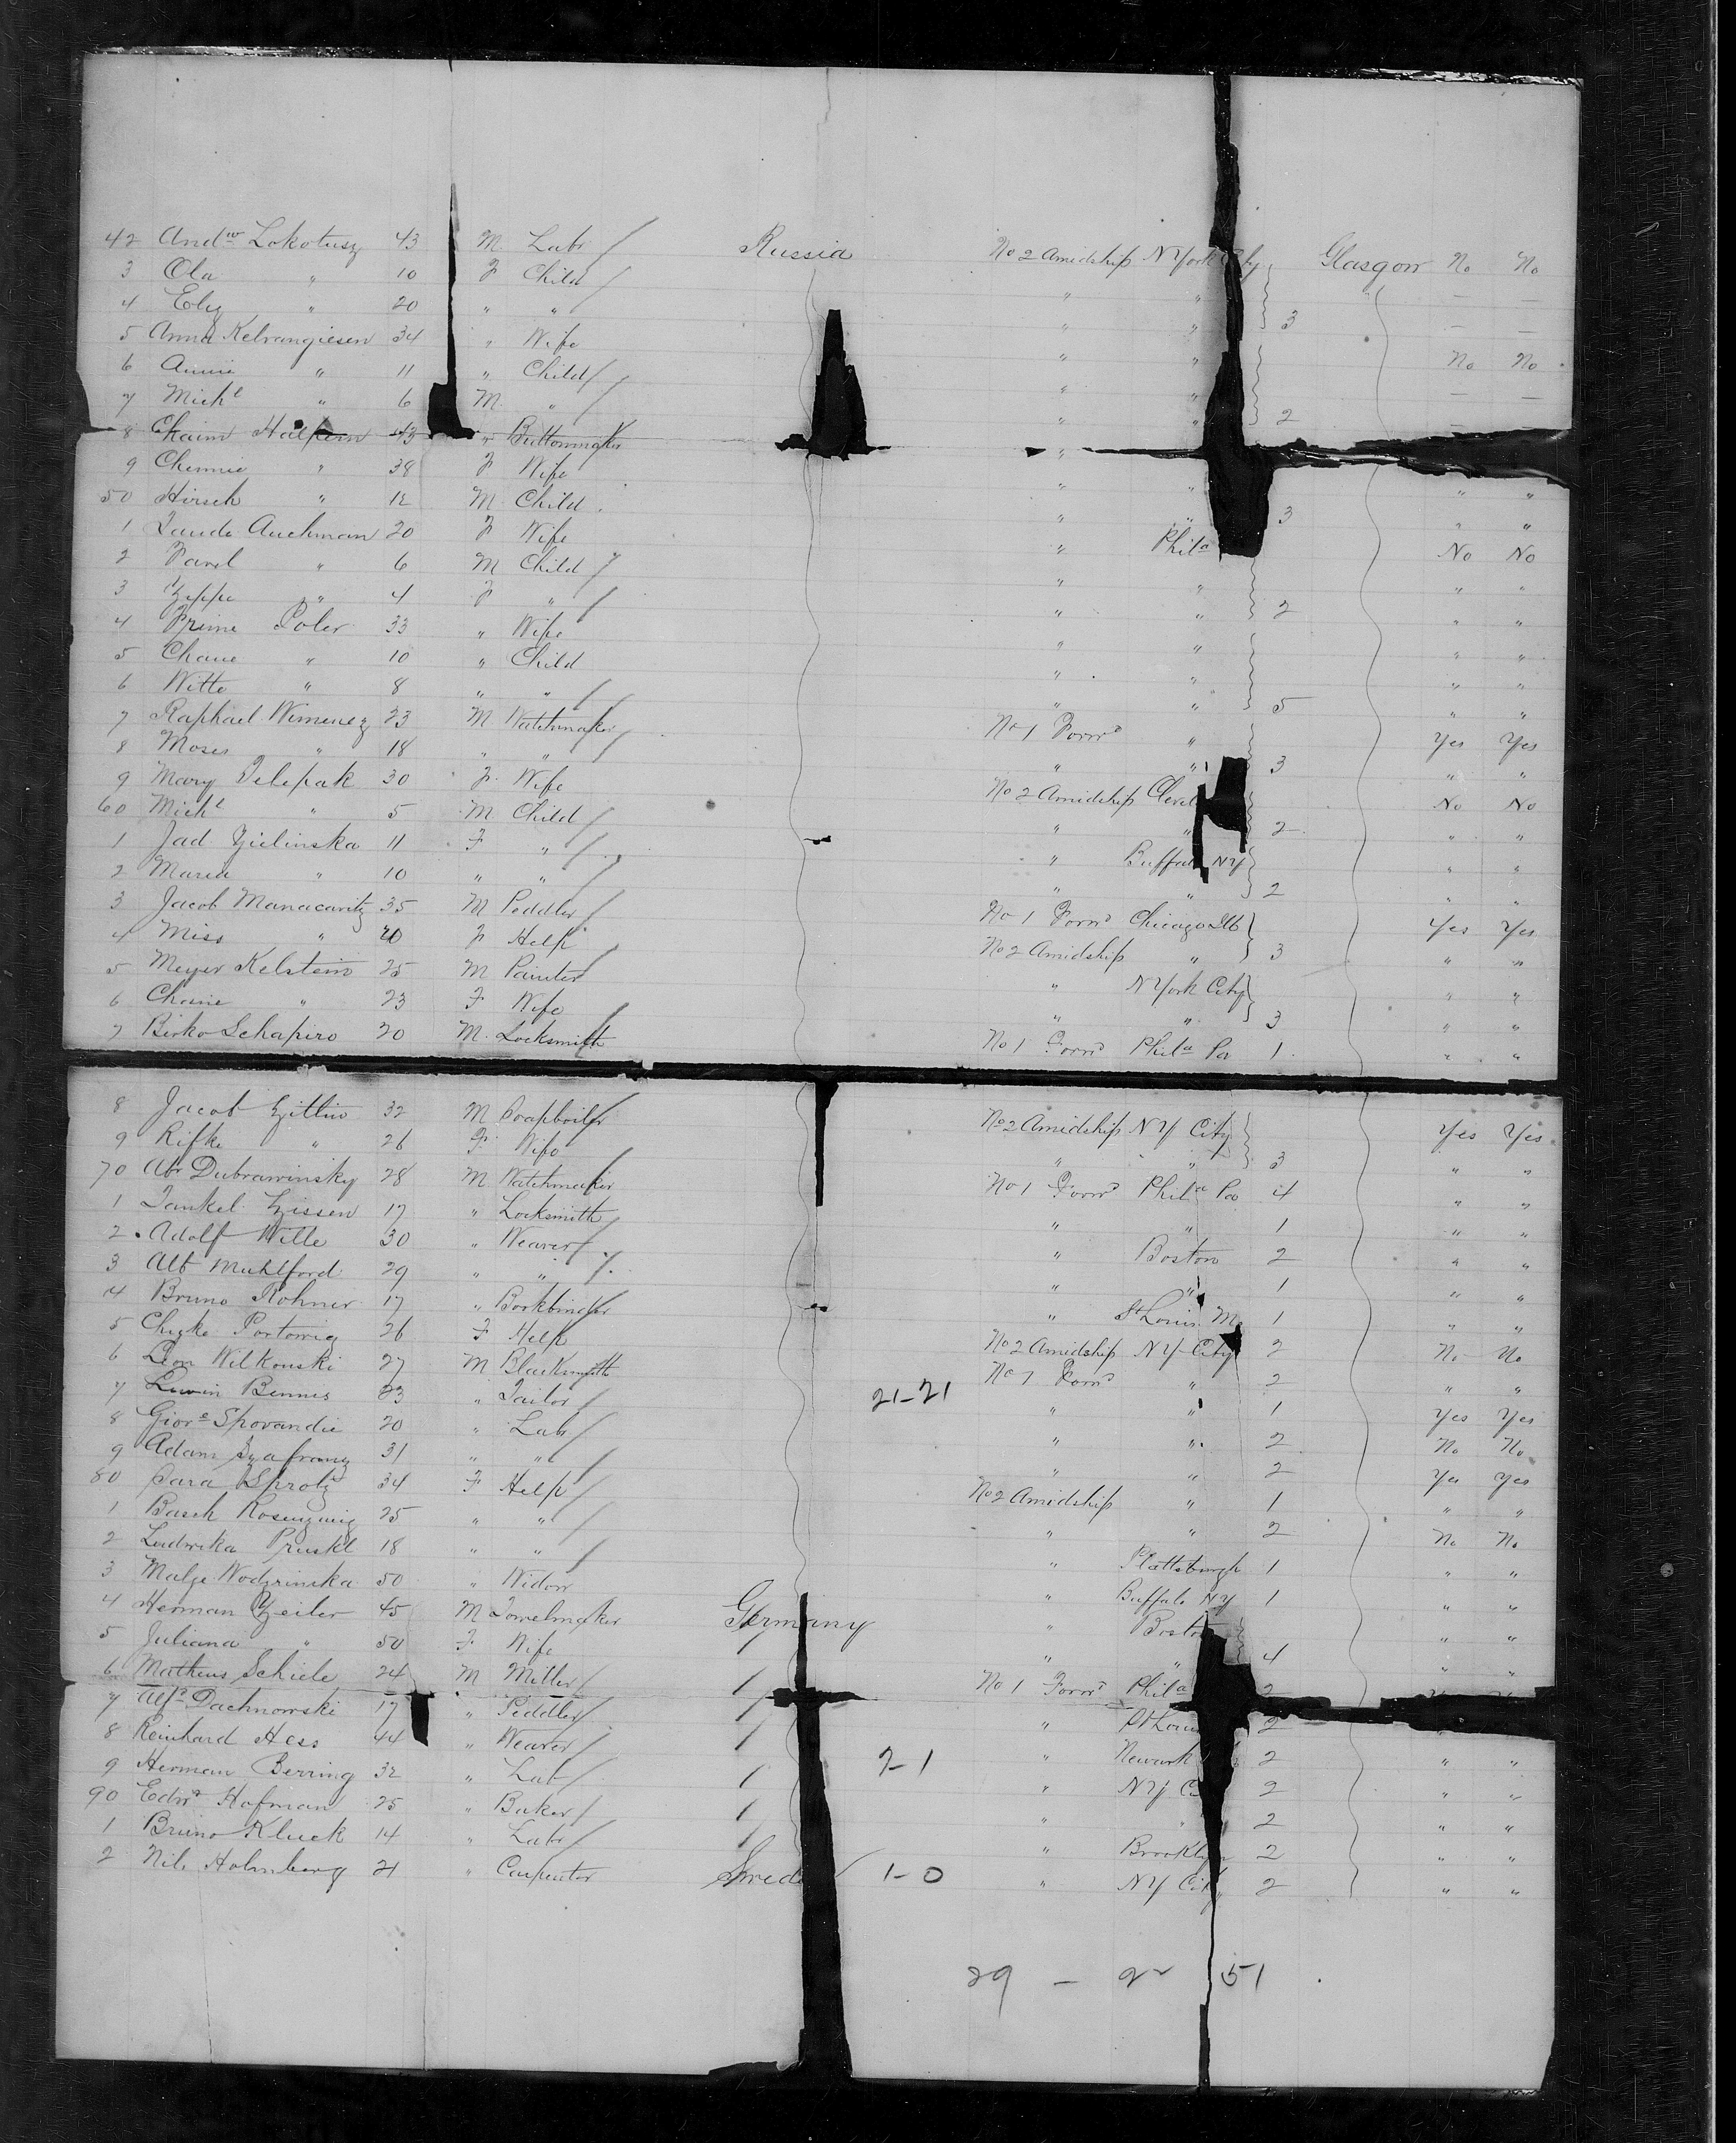 42 Andw Lokotusz 43 M Labr Russia No 2 Amidship N York City Glasgow No No
3 Ola " 10 F Child " " — —
4 Elz " 20 " " " " 3 — —
5 Anna Kelvangiesen 34 " Wife " " No No
6 Annie " 11 " Child " " — —
7 Michl " 6 M " " " 2 — —
8 Chaim Halpern 43 " Buttonmaker "
9 Chennie " 38 F Wife " " " "
50 Hirsch " 12 M Child " " 3 " "
1 Taude Auchman 20 F Wife " Phila No No
2 Favel " 6 M Child " " " "
3 Zeppe " 4 F " " " 2 " "
4 Prime Poler 33 " Wife " " " "
5 Chane " 10 " Child " " " "
6 Witte " 8 " " " " 5 " "
7 Raphael Wimenez 23 M Watchmaker No 1 Forwd " Yes Yes
8 Moses " 18 " " " " 3 " "
9 Mary Telepak 30 F Wife No 2 Amidship Clevel No No
60 Michl " 5 M Child " " 2 " "
1 Jad. Zielinska 11 F " " Buffalo NY " "
2 Maria " 10 " " " " 2 " "
3 Jacob Manacavitz 35 M Peddler No 1 Forwd Chicago Ill Yes Yes
4 Miss " 20 F Help No 2 Amidship " 3 " "
5 Meyer Kelstein 25 M Painter " N York City " "
6 Chasie " 23 F Wife " " 3 " "
7 Birko Schapiro 20 M. Locksmith No 1 Forwd Phila Pa 1 " "
8 Jacob Zittin 32 M Soapboiler No 2 Amidship NY City Yes Yes
9 Rifke " 26 F Wife " " 3 " "
70 Abr Dubrawinsky 28 M Watchmaker No 1 Forwd Phila Pa 4 " "
1 Tankel Zissen 17 " Locksmith " " 1 " "
2 Adolf Witte 30 " Weaver " Boston 2 " "
3 Alb Muhlford 29 " " " " 1 " "
4 Bruno Rohner 17 " Bookbinder " St Louis Mo 1 " "
5 Chyke Portowig 26 F Help No 2 Amidship NY City 2 No No
6 Leon Wilkouski 27 M Blacksmith No 1 Forwd " 2 " "
7 Lewin Bennes 23 " Tailor 21-21 " " 1 Yes Yes
8 Giore Spovandie 20 " Labr " " 2 No No
9 Adam Szafranz 31 " " " " 2 Yes Yes
80 Sara Sprotz 34 F Help No 2 Amidship " 1 " "
1 Basch Rosenzweig 25 " " " " 2 No No
2 Ludwika Pruskl 18 " " " Plattsburgh 1 " "
3 Malze Wodzrinska 50 " Widow " Buffalo NY 1 " "
4 Herman Zeiler 45 M Towelmaker Germany " Boston " "
5 Juliana " 50 F Wife " " 4 " "
6 Matheus Schiele 24 M Miller No 1 Forwd Phila 2
7 Alfd Dachnowski 17 " Peddler " St Louis 2 "
8 Reinhard Hess 44 " Weaver 2-1 " Newark 2 " "
9 Herman Berring 32 " Labr " NY Ci 2 " "
90 Edwd Hofman 25 " Baker " " 2 " "
1 Bruno Kluck 14 " Labr " Brooklyn 2 " "
2 Nils Holmberg 21 " Carpenter Swede 1-0 " NY City 2 " "
29 — 22 51